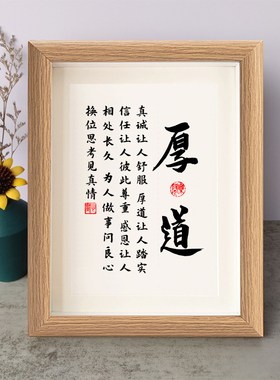 厚道
真诚让人舒服 厚道让人踏实
信任让人彼此尊重 感恩让人
相处长久 为人做事问良心
换位思考见真情